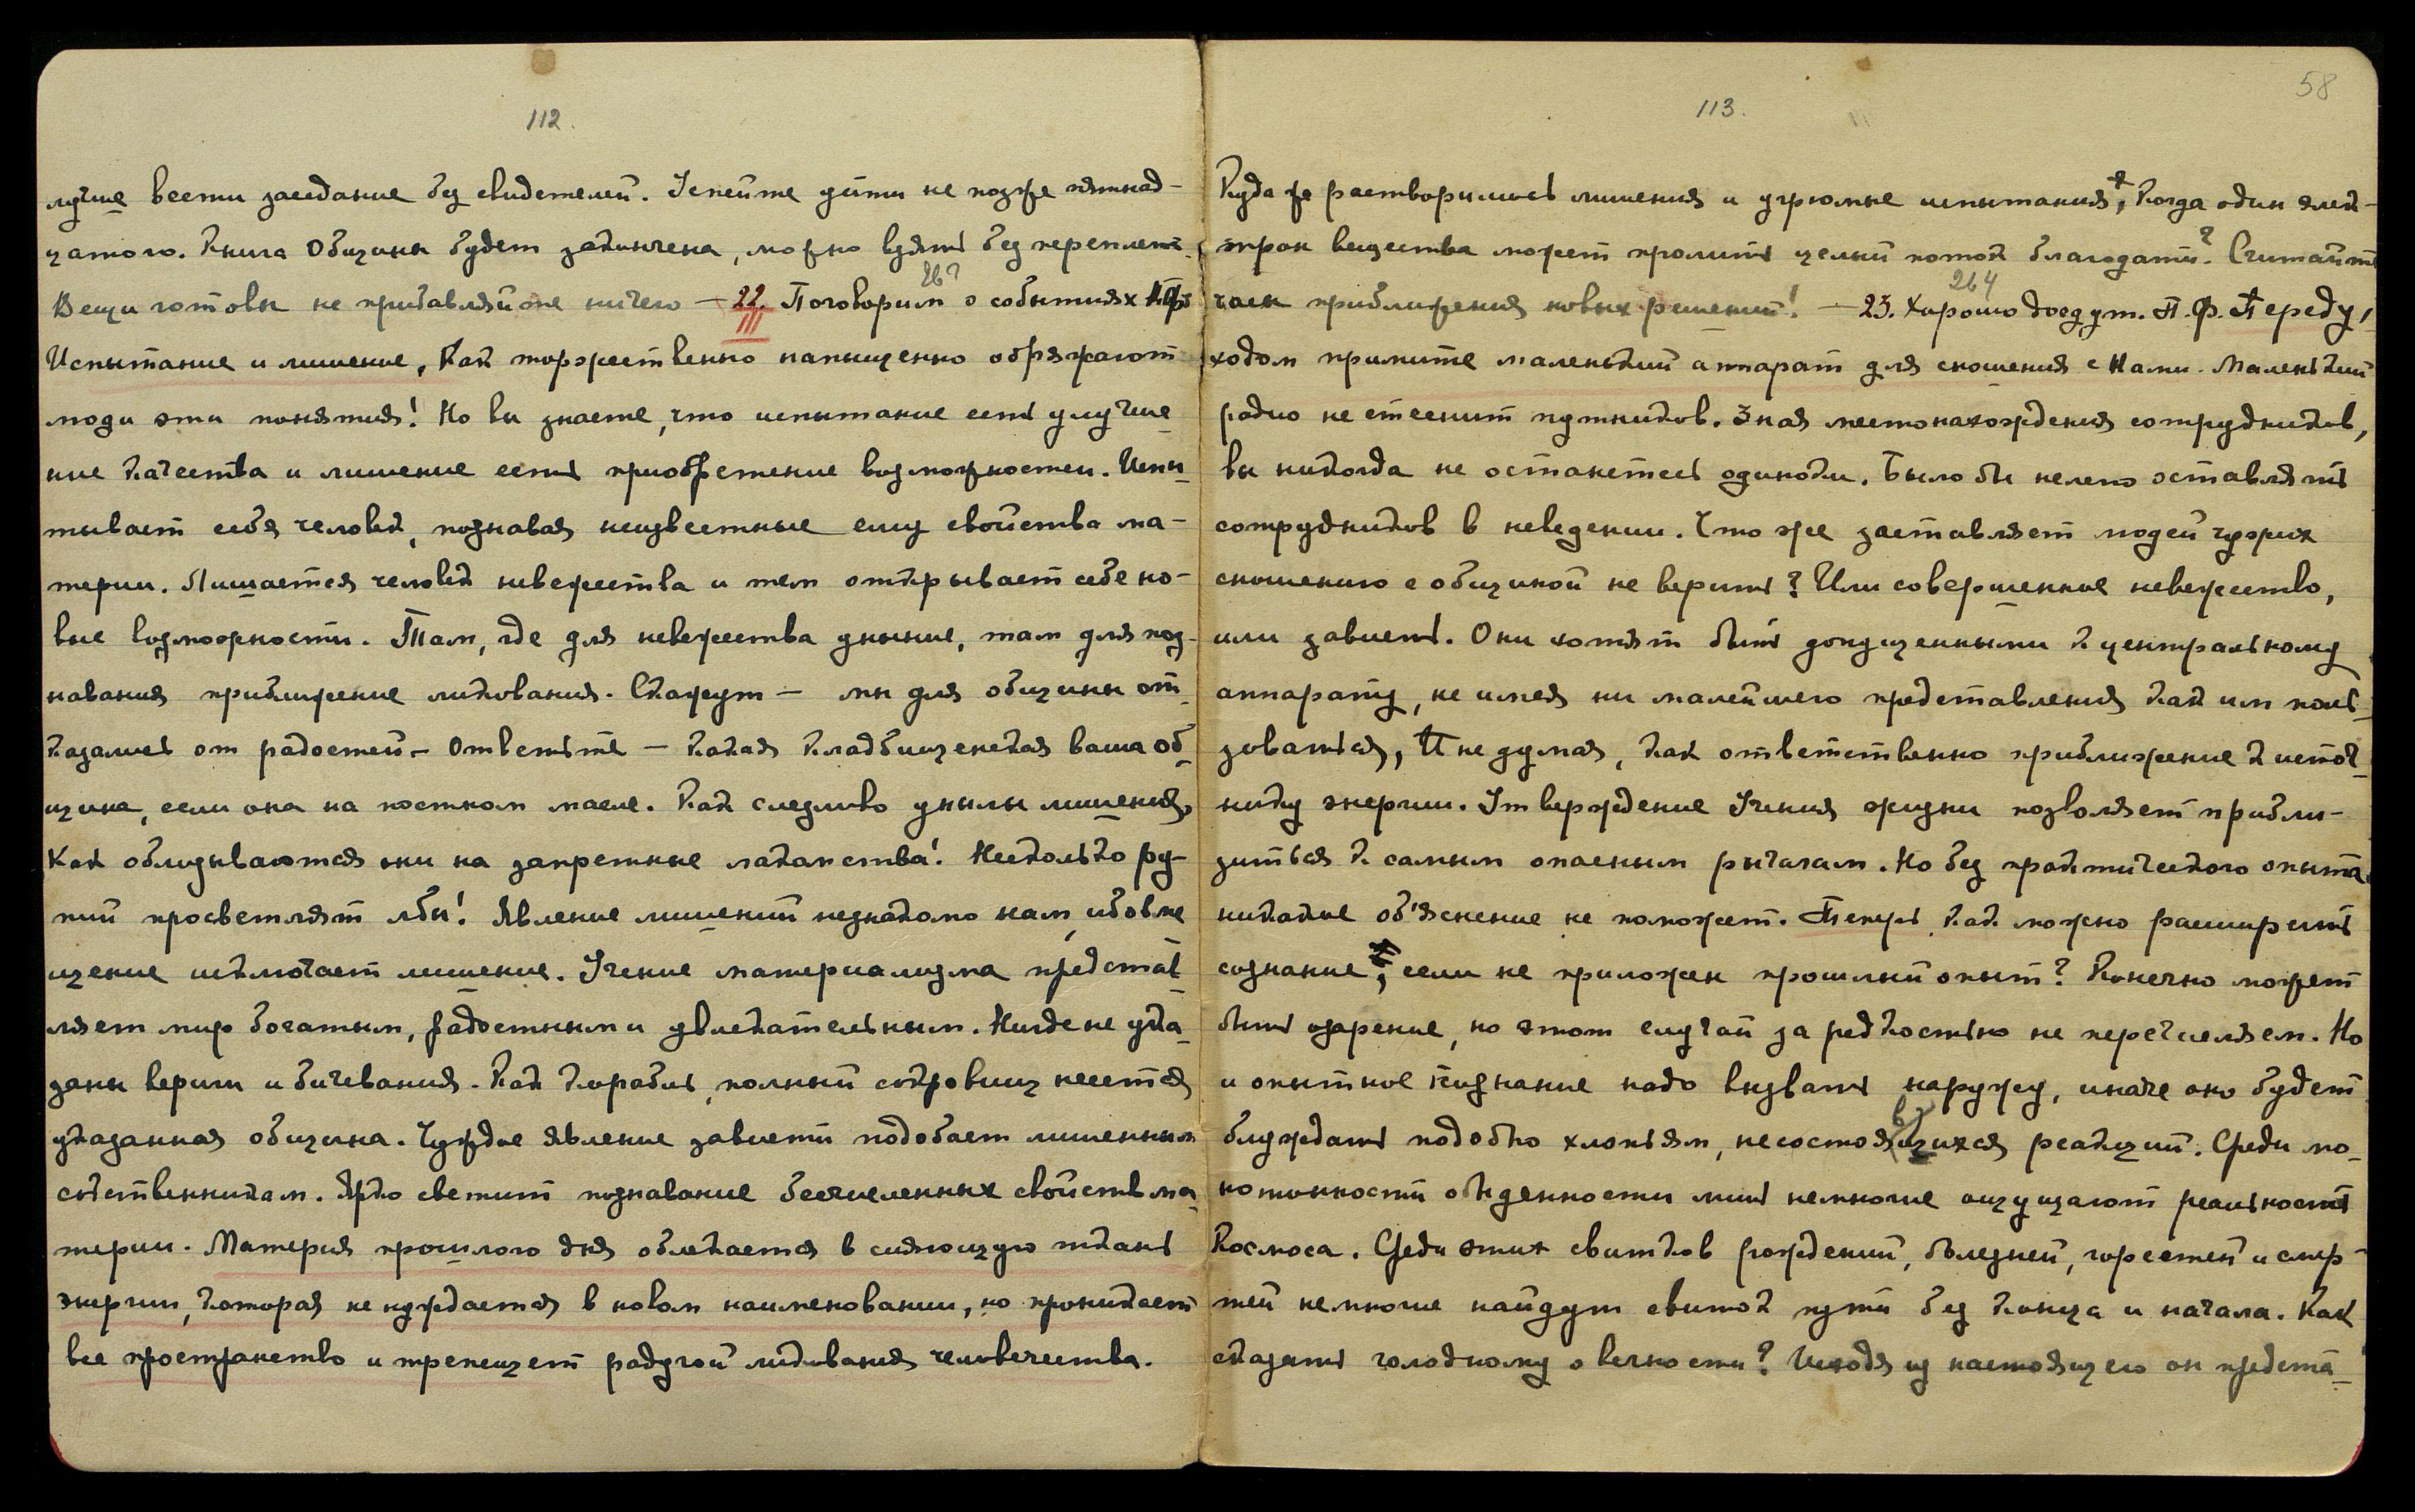 112.
лучше вести заседание без свидетелей. Успейте уйти не позже пятнад-
цатого. Книга Общины будет закончена, можно взять без переплета.
Вещи готовы не прибавляйте ничего — 22. Поговорим о событиях
III
Испытание и лишение, как торжественно напыщенно обряжают
люди эти понятия! Но вы знаете, что испытание есть улучше
ние качества и лишение есть приобретение возможностей. Испы
тывает себя человек, познавая неизвестные ему свойства ма-
терии. Лишается человек невежества и тем открывает себе но-
вые возможности. Там, где для невежества уныние, там для поз-
навания приближение ликования. Скажут — мы для общины от
казались от радостей — Ответьте — какая кладбищенская ваша об
щина, если она на постном масле. Как слезливо унылы лишения,
Как облизываются они на запретные лакомства! Несколько ру-
пий просветляют лбы! Явление лишений незнакомо нам, ибо вме
щение исключает лишение. Учение материализма представ
ляет мир богатым, радостным и увлекательным. Нигде не ука
заны вериги и бичевания. Как корабль, полный сокровищ несется
указанная община. Чуждое явление зависти подобает лишенным
собственникам. Ярко светит познавание бесчисленных свойств ма
терии. Материя прошлого дня облекается в сияющую ткань
энергии, которая не нуждается в новом наименовании, но проникает
все пространство и трепещет радугой ликования человечества.
113.
58
Куда же растворились лишения и угрюмые испытания, когда один элек-
трон вещества может пролить целый поток благодати? Считайте
264
часы приближения новых решений! — 23. Хорошо доедут. П. Ф. Переду,
ходом примите маленький аппарат для сношения с Нами. Маленький
радио не стеснит путников. Зная местонахождения сотрудников,
вы никогда не останетесь одиноки. Было бы нелепо оставлять
сотрудников в неведении. Что же заставляет людей чужих
сношению с общиной не верить? Или совершенное невежество,
или зависть. Они хотят быть допущенными к центральному
аппарату, не имея ни малейшего представления как им поль
зоваться, И не думая, как ответственно приближение к источ
нику энергии. Утверждение Учения жизни позволяет прибли-
зиться к самым опасным рычагам. Но без практического опыта
никакие об'яснение не поможет. Теперь, как можно расширить
сознание, если не приложен прошлый опыт? Конечно может
быть озарение, но этот случай за редкостью не перечисляем. Но
и опытное познание надо вызвать наружу, иначе оно будет
блуждать подобно хлопьям, несостоявшихся реакций. Среди мо-
нотонности обыденности лишь немногие ощущают реальность
Космоса. Среди этих свитков рождений, болезней, горестей и смер-
тей немногие найдут свиток пути без конца и начала. Как
сказать голодному о вечности? Исходя из настоящего он предста